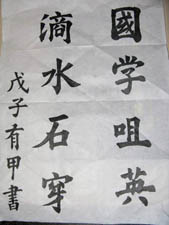 國学咀英
滴水石穿
戊子有甲書